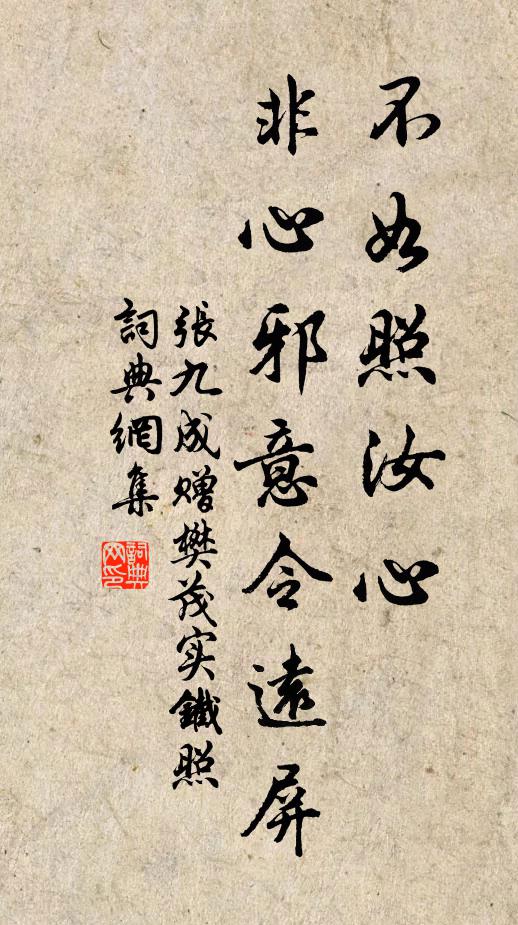 不如照汝心
非心邪意令遠屏
張九成赠樊茂实鐵照
詞典網集
詞典網印